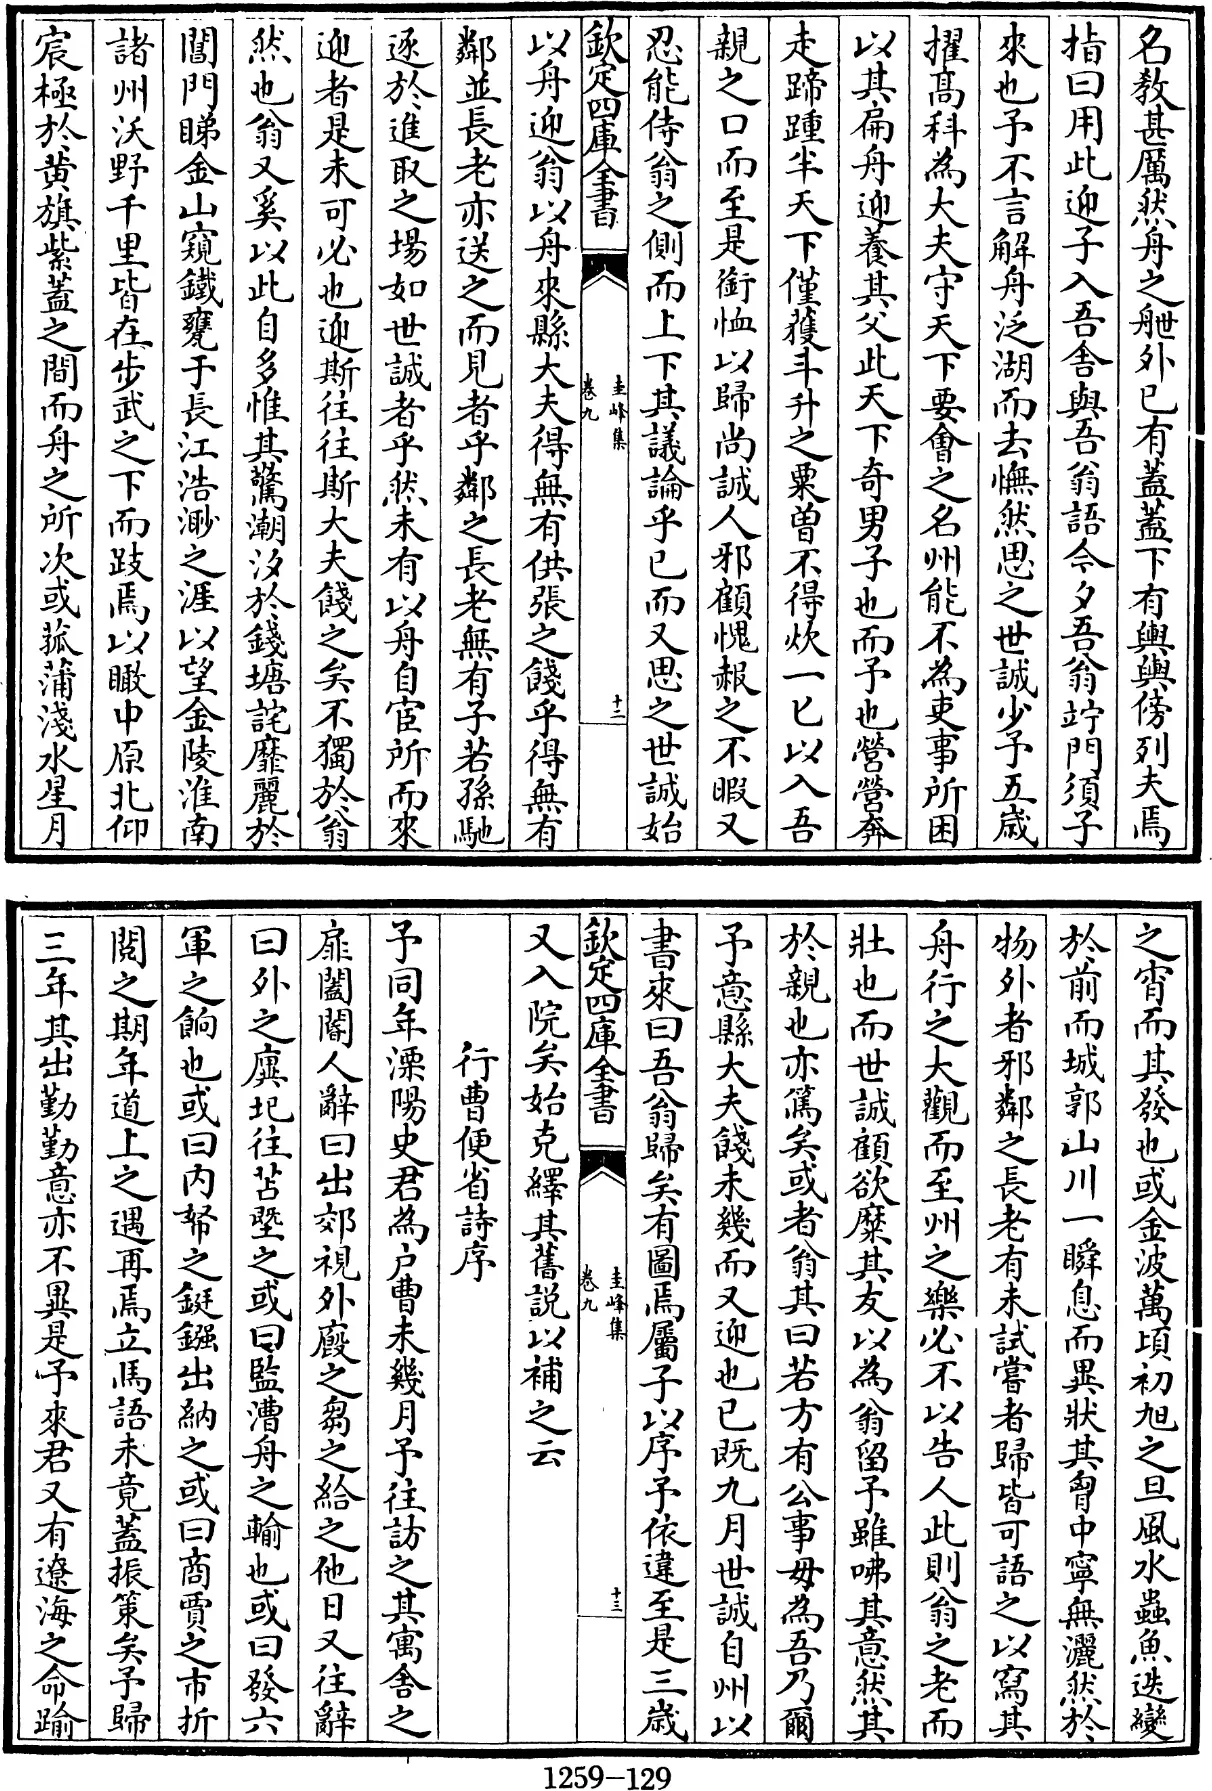 名教甚厲然舟之舭外已有蓋蓋下有輿輿傍列夫焉
指曰用此迎子入吾舎與吾翁語今夕吾翁竚門須子
來也予不言解舟泛湖而去憮然思之世誠少予五歳
擢髙科為大夫守天下要㑹之名州能不為吏事所困
以其扁舟迎養其父此天下奇男子也而予也營營奔
走蹄踵半天下僅獲斗升之粟曽不得炊一匕以入吾
親之口而至是銜恤以歸尚誠人邪顧愧赧之不暇又
忍能侍翁之側而上下其議論乎已而又思之世誠始
欽定四庫全書
圭峰集
卷九
十二
以舟迎翁以舟來縣大夫得無有供張之餞乎得無有
鄰並長老亦送之而見者乎鄰之長老無有子若孫馳
逐於進取之場如世誠者乎然未有以舟自宦所而來
迎者是未可必也迎斯往往斯大夫餞之矣不獨於翁
然也翁又奚以此自多惟其驚潮汐於錢塘詫靡麗於
閶門睇金山窺鐵甕于長江浩渺之涯以望金陵淮南
諸州沃野千里皆在步武之下而跂焉以瞰中原北仰
宸極於黄旗紫蓋之間而舟之所次或菰蒲淺水星月
之宵而其發也或金波萬頃初旭之旦風水蟲魚迭變
於前而城郭山川一瞬息而異狀其胷中寜無灑然於
物外者邪鄰之長老有未試嘗者歸皆可語之以寫其
舟行之大觀而至州之樂必不以告人此則翁之老而
壯也而世誠顧欲糜其友以為翁留予雖咈其意然其
於親也亦篤矣或者翁其曰若方有公事毋為吾乃爾
予意縣大夫餞未幾而又迎也已既九月世誠自州以
書來曰吾翁歸矣有圖焉屬子以序予依違至是三歳
欽定四庫全書
圭峰集
卷九
十三
又入院矣始克繹其舊説以補之云
行曹便省詩序
予同年溧陽史君為户曹未幾月予往訪之其寓舎之
扉闔閽人辭曰出郊視外廏之芻之給之他日又往辭
曰外之廩圮往苫塈之或曰監漕舟之輸也或曰發六
軍之餉也或曰内帑之鋌鏹出納之或曰商賈之市折
閱之期年道上之遇再焉立馬語未竟蓋振策矣予歸
三年其出勤勤意亦不異是予來君又有遼海之命踰
1259—129